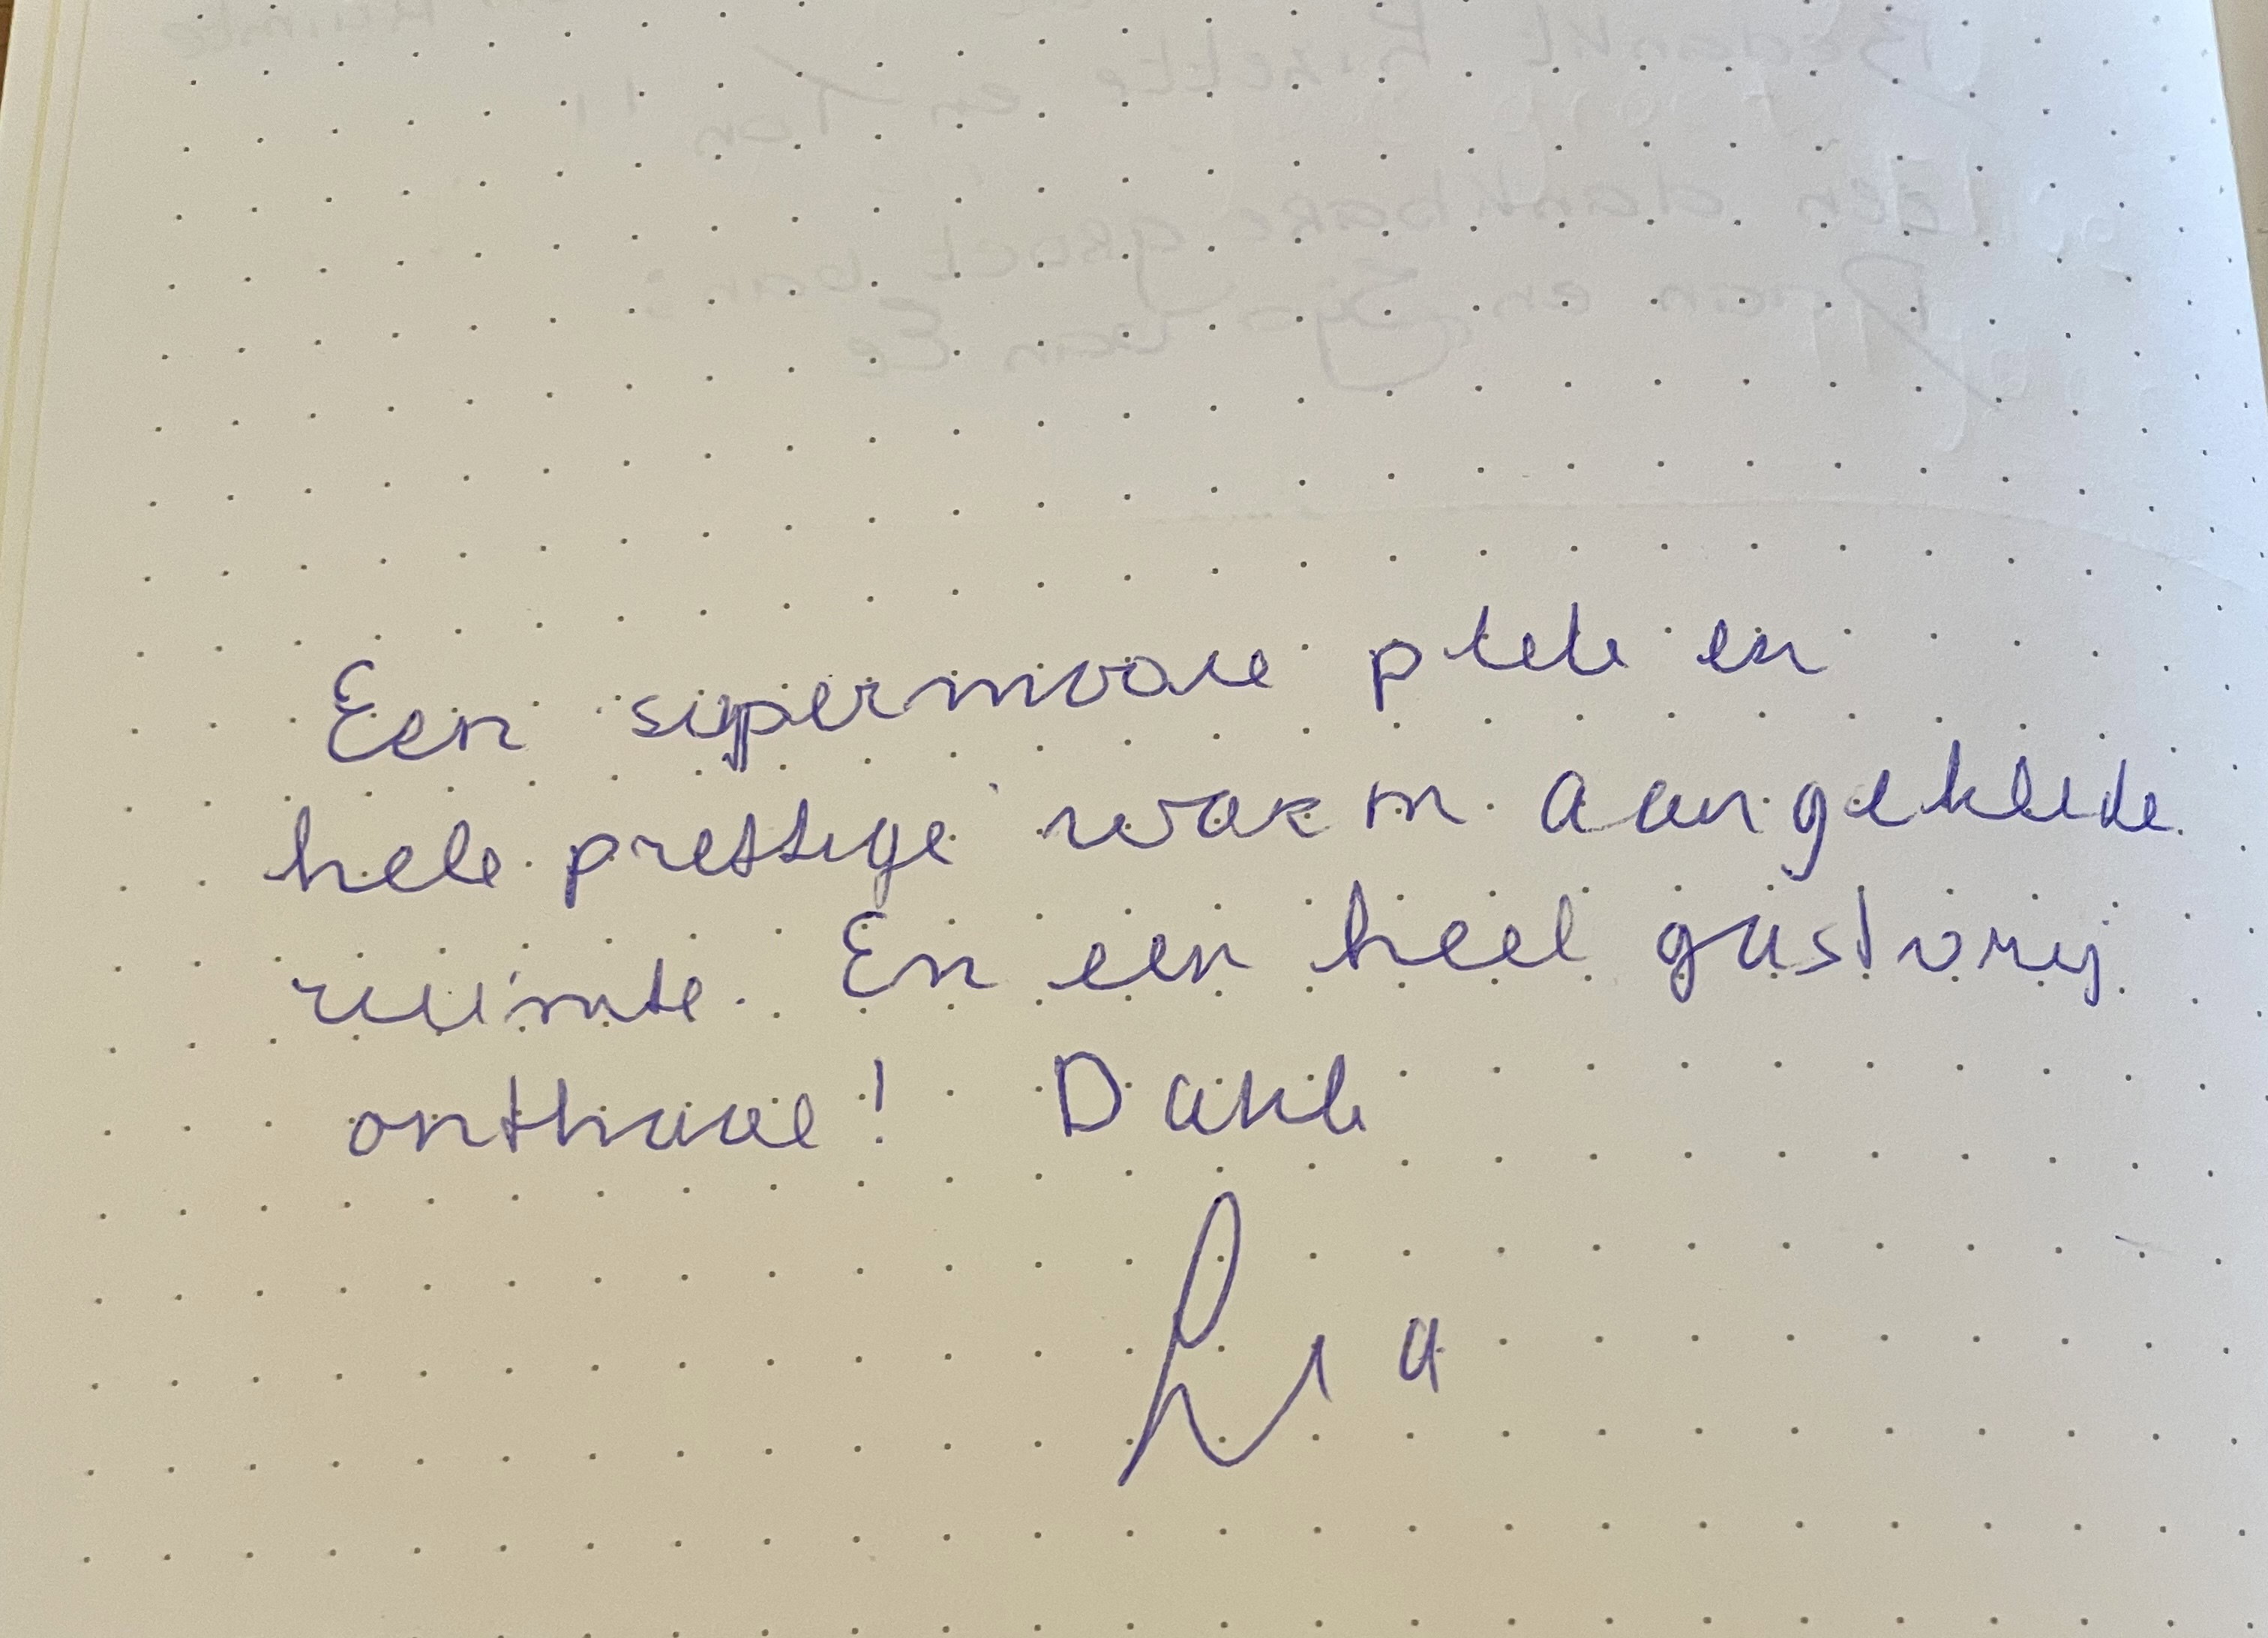 Een supermooie plek en
hele prettige warm aangeklede
ruimte. En een heel gastvrij
onthaal! Dank
Lia